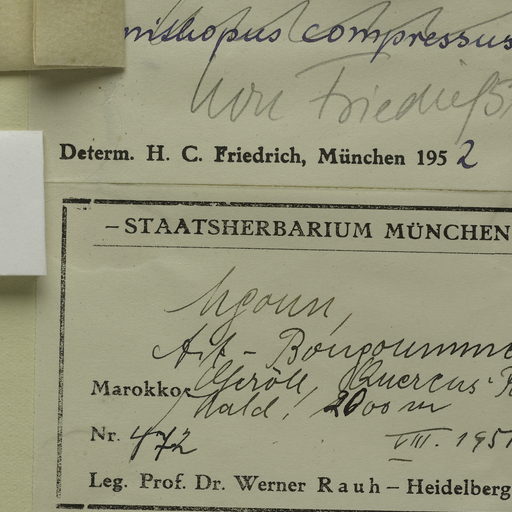 nithopus compressus
non
Determ. H. C. Friedrich, München 1952
– STAATSHERBARIUM MÜNCHEN
Mgoun,
Ait – Bougoumme
Geröll, Quercus-
Marokko:
Wald! 2000 m
Nr. 472 VIII. 1951
Leg. Prof. Dr. Werner Rauh – Heidelberg